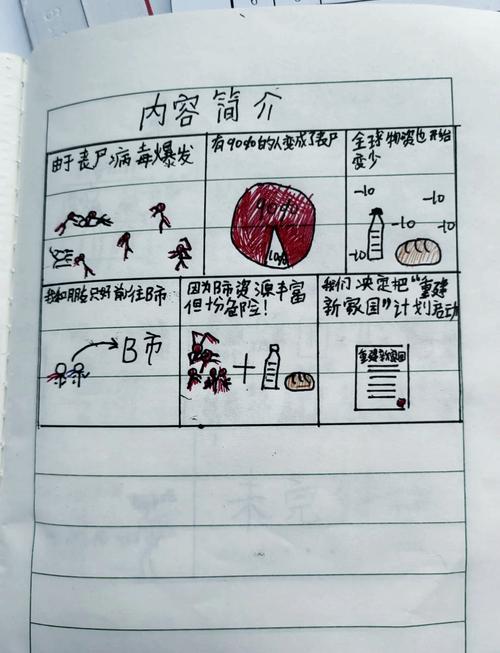 内容简介
由于丧尸病毒爆发
有90%的人变成了丧尸
90%
10%
全球物资也开始
变少
-10
-10
-10
-10
-10
我和朋友只好前往B市
B市
因为B市资源丰富
但十分危险!
+
我们决定把"重建
新家园"计划启动
重建新家园